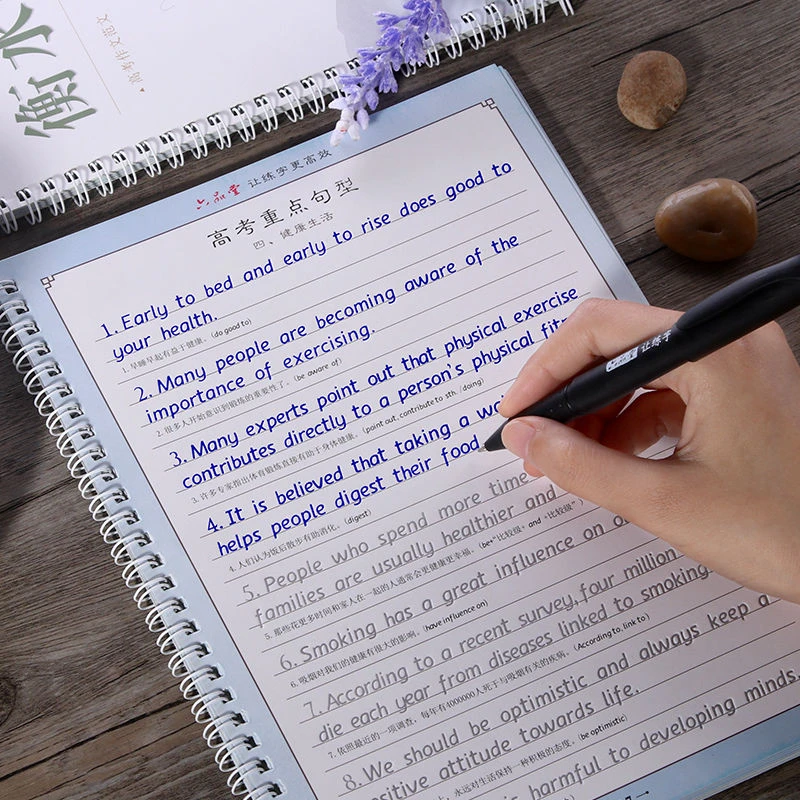 衡水
高考作文范文
六品堂 让练字更高效
高考重点句型
四、健康生活
1. Early to bed and early to rise does good to
your health.
1. 早睡早起有益于健康。(do good to)
2. Many people are becoming aware of the
importance of exercising.
2. 很多人开始意识到锻炼的重要性了。(be aware of)
3. Many experts point out that physical exercise
contributes directly to a person's physical
3. 许多专家指出体育锻炼直接有助于身体健康。(point out, contribute to sth. /doing)
4. It is believed that taking a
helps people digest their food
4. 人们认为饭后散步有助消化。(digest)
5. People who spend more time
families are usually healthier and
5. 那些花更多时间和家人在一起的人通常会更健康更幸福。(be+"比较级" and "比较级")
6. Smoking has a great influence on
6. 吸烟对我们的健康有很大的影响。(have influence on)
7. According to a recent survey, four million
die each year from diseases linked to smoking.
7. 依照最近的一项调查，每年有4000000人死于与吸烟有关的疾病。(According to, link to)
8. We should be optimistic and always keep a
positive attitude towards life.
永远对生活保持一种积极的态度。(be optimistic)
is harmful to developing minds.
让练字